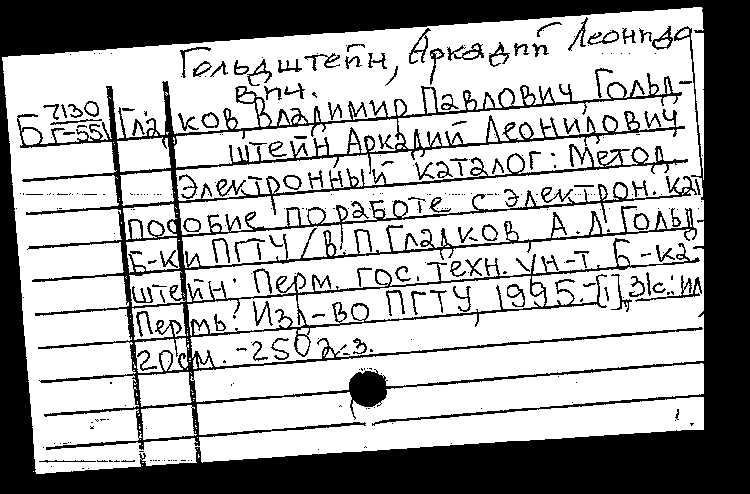 Гольдштейн, Аркадий Леонидо-
вич.
Б 7130/Г-551 Гладков, Владимир Павлович, Гольд-
штейн, Аркадий Леонидович
Электронный каталог: Метод.
пособие по работе с электрон. кат.
Б-ки ПГТУ / В.П. Гладков, А.Л. Гольд-
штейн; Перм. гос. техн. ун-т. Б-ка.-
Пермь: Изд-во ПГТУ, 1995.-[1], 31с.: ил.
20см. -250 э.